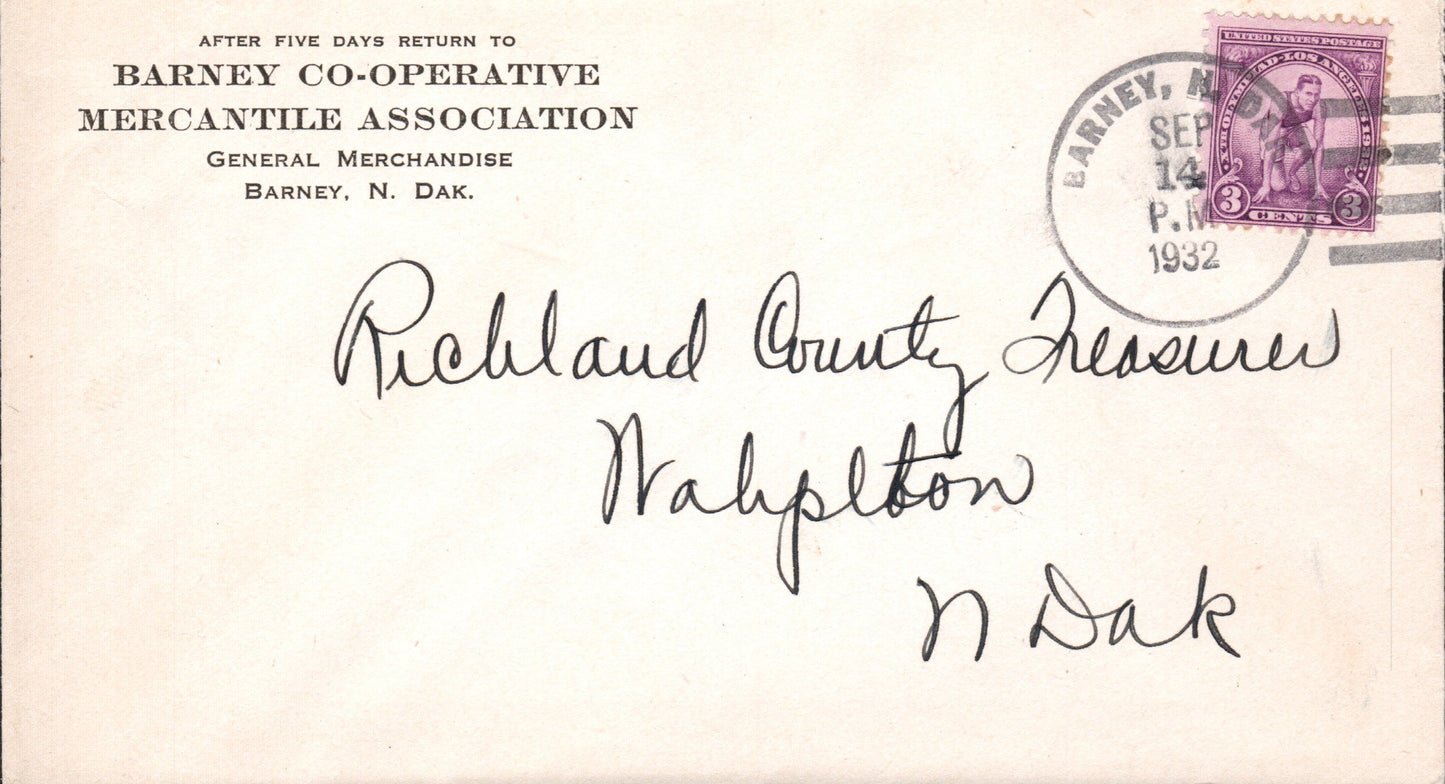 AFTER FIVE DAYS RETURN TO
BARNEY CO-OPERATIVE
MERCANTILE ASSOCIATION
GENERAL MERCHANDISE
BARNEY, N. DAK.
BARNEY, N. DAK.
SEP
14
P.M
1932
UNITED STATES POSTAGE
XTH OLYMPIAD·LOS ANGELES 1932
3 3
CENTS
Richland County Treasurer
Wahpeton
N Dak